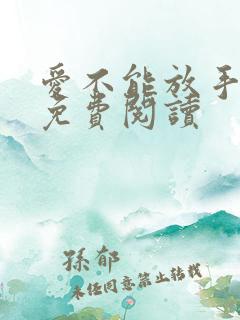 愛不能放手
免費閱讀
孫郁
未经同意禁止转载